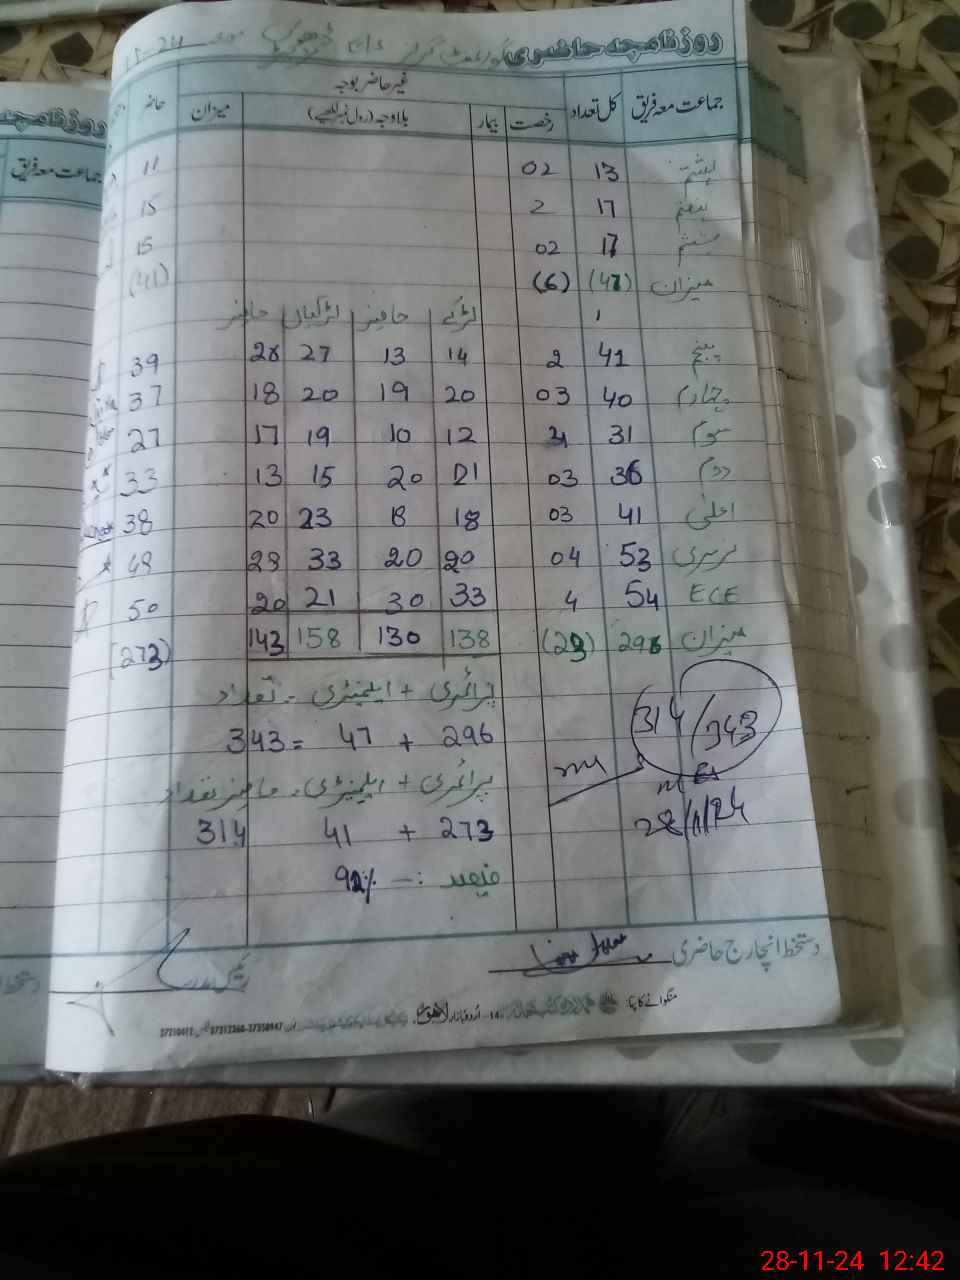 روزنامچہ حاضری گورنمنٹ گرلز E/S
جماعت معہ فریق کل تعداد غیر حاضر بوجہ میزان حاضر
رخصت بیمار بلاوجہ (رول نمبر لکھیے)
ہشتم 13 02 11
ہفتم 17 2 15
ششم 17 02 15
میزان (47) (6) (41)
لڑکے حاضر لڑکیاں حاضر
پنجم 41 2 14 13 27 26 39
چہارم 40 03 20 19 20 18 37
سوم 31 12 10 19 17 27
دوم 36 03 21 20 15 13 33
اعلیٰ 41 03 18 18 23 20 38
نرسری 53 04 20 20 33 28 48
ECE 54 4 33 30 21 20 50
میزان 296 (23) 138 130 158 143 (273)
پرائمری + ایلیمنٹری = تعداد
296 + 47 = 343
314/343
پرائمری + ایلیمنٹری = حاضر تعداد
273 + 41 314
28/11/24
فیصد :- 92%
دستخط انچارج حاضری
منگوانے کا پتہ:
14- اُردو بازار لاہور
روزنامچہ
جماعت معہ فریق
دستخط
28-11-24 12:42